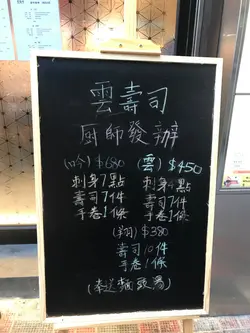 雲壽司
厨師發辦
(吟) $680 (雲) $450
刺身7點 刺身4點
壽司7件 壽司7件
手卷1條 手卷1條
(翔) $380
壽司10件
手卷1條
(奉送麵豉湯)